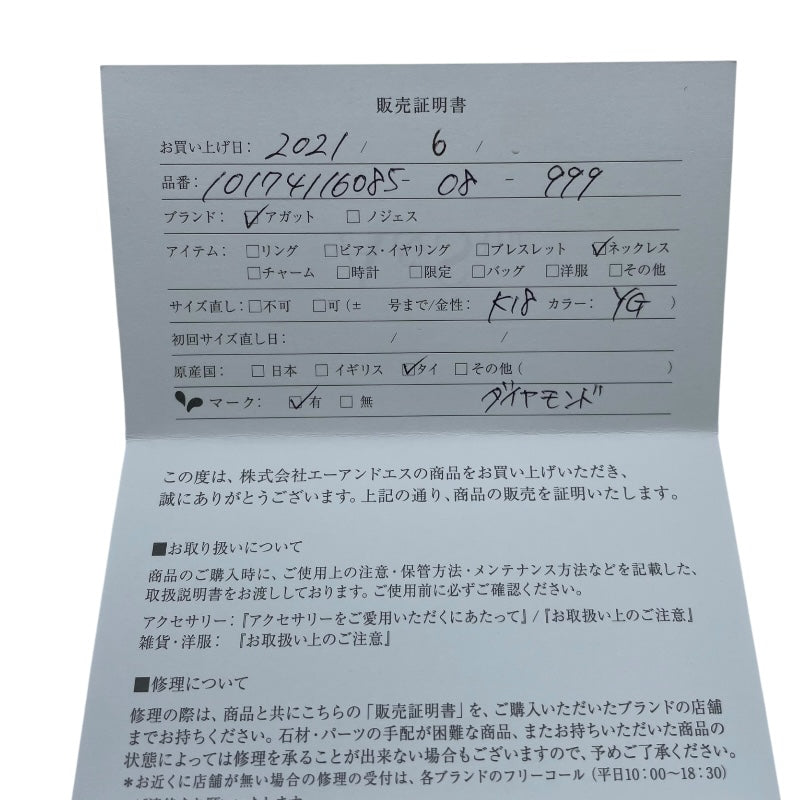 販売証明書
お買い上げ日: 2021 / 6 /
品番: 10174116085- 08 - 999
ブランド: ☑アガット □ノジェス
アイテム: □リング □ピアス・イヤリング □ブレスレット ☑ネックレス
□チャーム □時計 □限定 □バッグ □洋服 □その他
サイズ直し: □不可 □可(± 号まで/金性: K18 カラー: YG )
初回サイズ直し日: / /
原産国: □日本 □イギリス ☑タイ □その他( )
マーク: ☑有 □無 ダイヤモンド
この度は、株式会社エーアンドエスの商品をお買い上げいただき、
誠にありがとうございます。上記の通り、商品の販売を証明いたします。
■お取り扱いについて
商品のご購入時に、ご使用上の注意・保管方法・メンテナンス方法などを記載した、
取扱説明書をお渡ししております。ご使用前に必ずご確認ください。
アクセサリー:『アクセサリーをご愛用いただくにあたって』/『お取扱い上のご注意』
雑貨・洋服: 『お取扱い上のご注意』
■修理について
修理の際は、商品と共にこちらの「販売証明書」を、ご購入いただいたブランドの店舗
までお持ちください。石材・パーツの手配が困難な商品、またお持ちいただいた商品の
状態によっては修理を承ることが出来ない場合もございますので、予めご了承ください。
*お近くに店舗が無い場合の修理の受付は、各ブランドのフリーコール(平日10:00〜18:30)